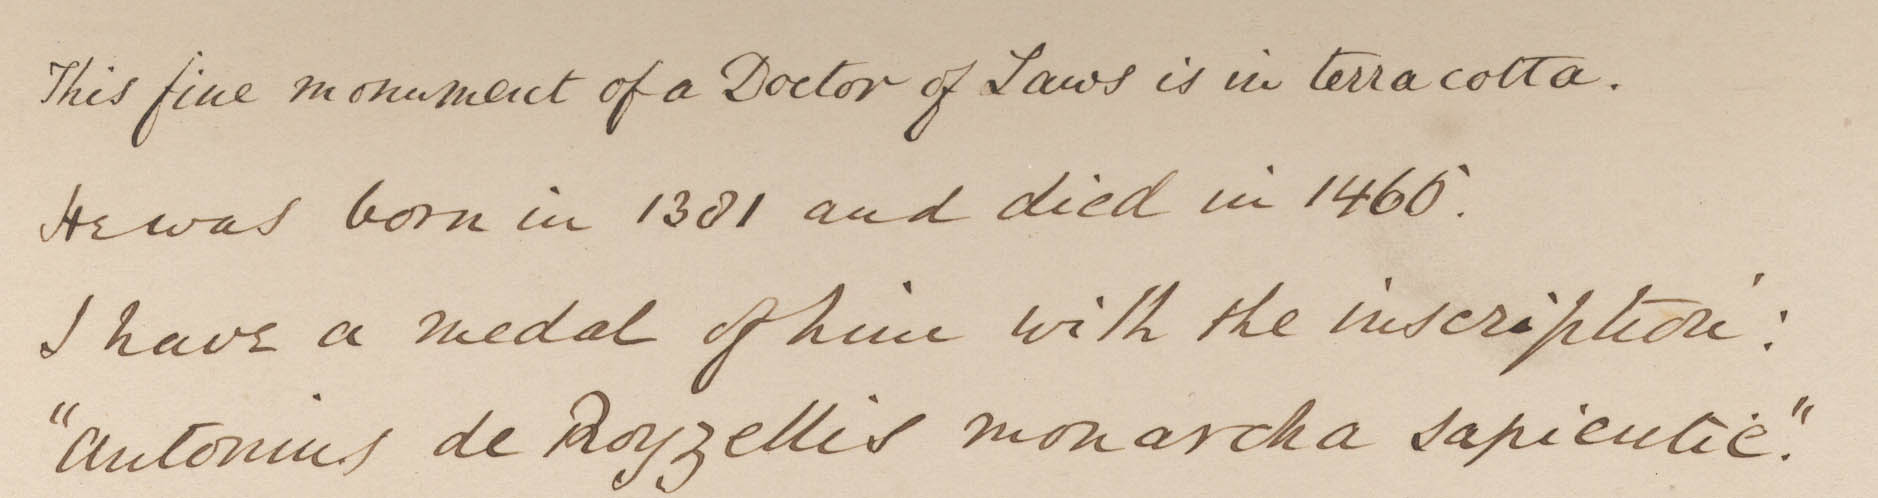 This fine monument of a Doctor of Laws is in terra cotta.
He was born in 1381 and died in 1466.
I have a medal of him with the inscription:
"Antonius de Royzellis monarcha sapientie."